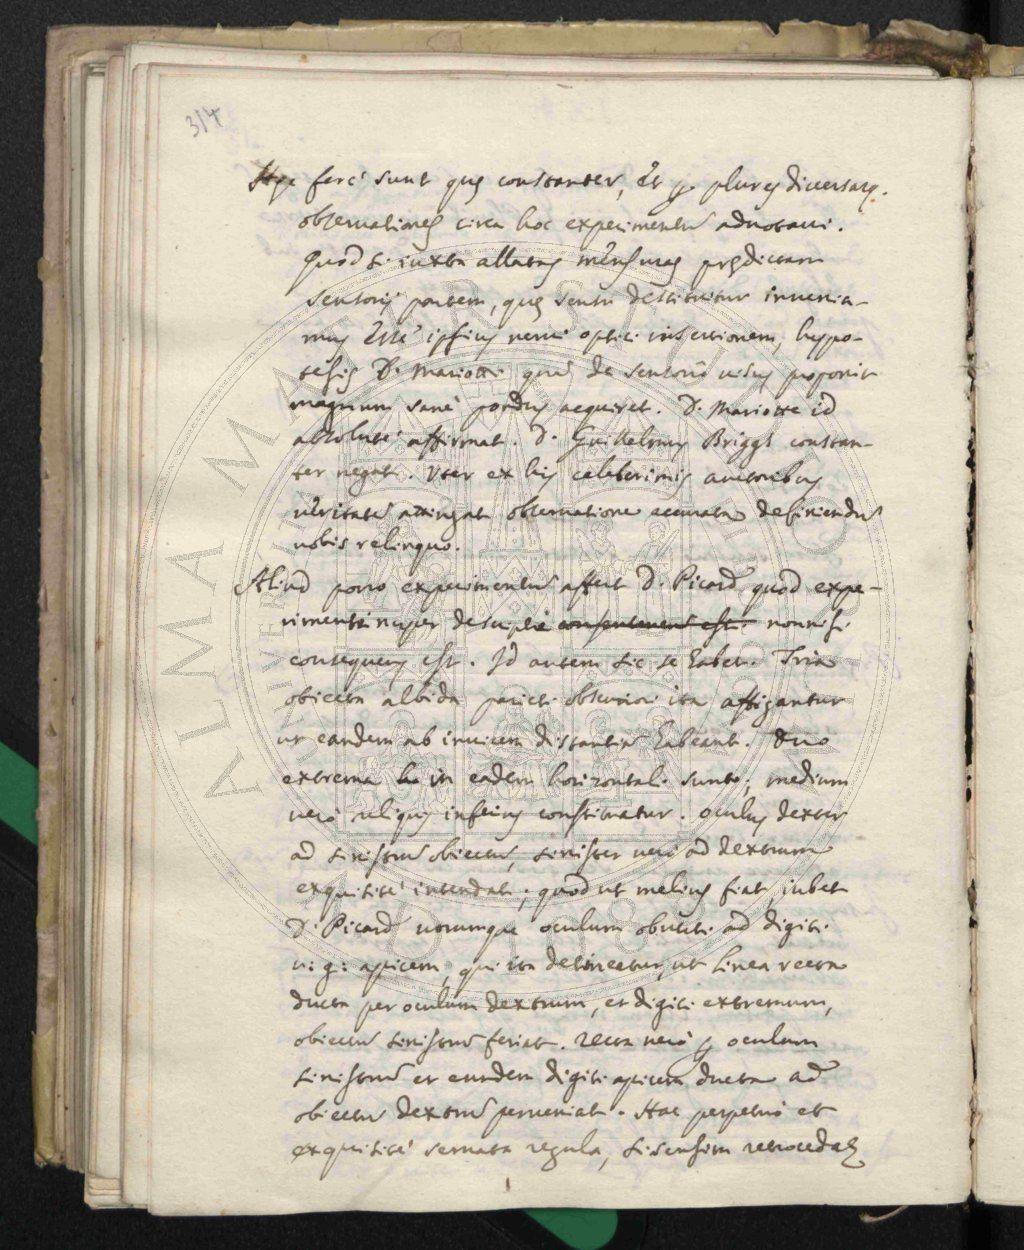 314
Hęc ferè sunt quę constanter, et per plures diversasq.
observationes circa hoc experimentū adnotavi.
Quod si iuxta allatas mēsuras prędictam
sensorij partem, quę sensu destituitur invenia-
mus esse ipsius nervi optici insertionem, hypo-
tesis D. Mariotte quē de sensorio visus proponit
magnum sanè pondus acquiret. D. Mariotte id
absolutè affirmat. D. Guillelmus Briggs constan-
ter negat. Uter ex his celeberrimis auctoribus
veritatē attingat observatione accurata definiendū
vobis relinquo.
Aliud porro experimentū affert D. Picard quod expe-
rimenti nuper descripti consentaneū est. nonnisi
consequens est. Id autem sic se habet. Tria
obiecta albida parieti obscuriori ita affigantur
ut eandem ab invicem distantiā habeant. Duo
extrema in eadem horizontali sunto; medium
verò reliquis inferius constituatur. Oculus dexter
ad sinistrū obiectū, sinister verò ad dextrum
exquisitè intendat; quod ut melius fiat, iubet
D. Picard utrumque oculum obverti ad digiti
v: g: apicem, qui ita detineatur, ut linea recta
ducta per oculum dextrum, et digiti extremum,
obiectū sinistrū feriat. recta verò per oculum
sinistrū et eundem digiti apicem ducta ad
obiectū dextrū perveniat. Hac perpetuò et
exquisitè servata regula, si sensim retrocedas
ALMA MATER STUDIORUM
A.D. 1088